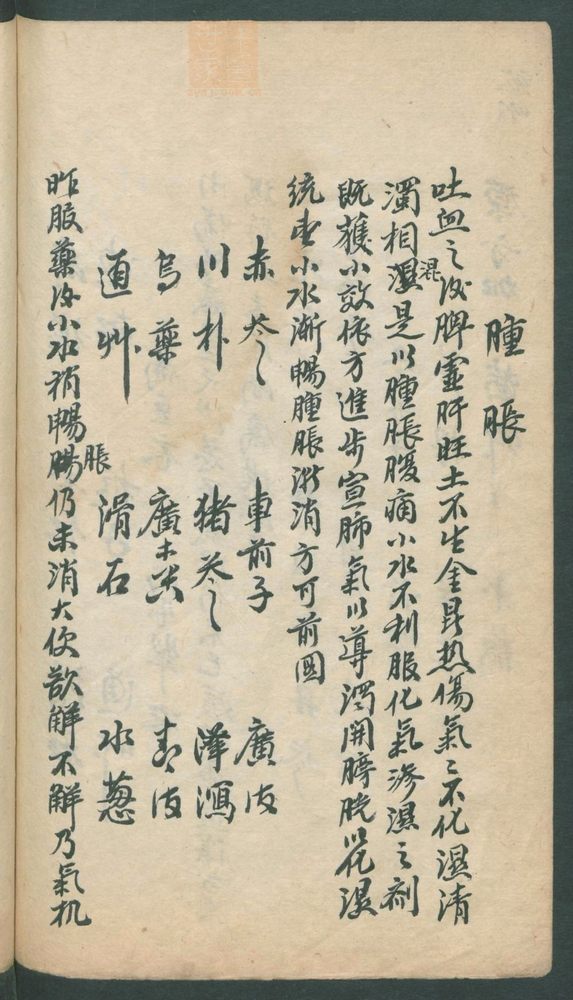 腫脹
吐血之後脾虛肝旺土不生金是热傷氣〻不化濕清
濁相混是以腫脹腹痛小水不利服化氣滲濕之劑
既獲小效依方進步宣肺氣以導濁開膀胱以化濕
統由小水漸暢腫脹漸消方可前圖
赤苓〻 車前子 廣皮
川朴 猪苓〻 澤瀉
烏藥 廣木香 青皮
通艸 滑石 水葱
昨服藥後小水稍暢腸脹仍未消大便欲解不解乃氣机